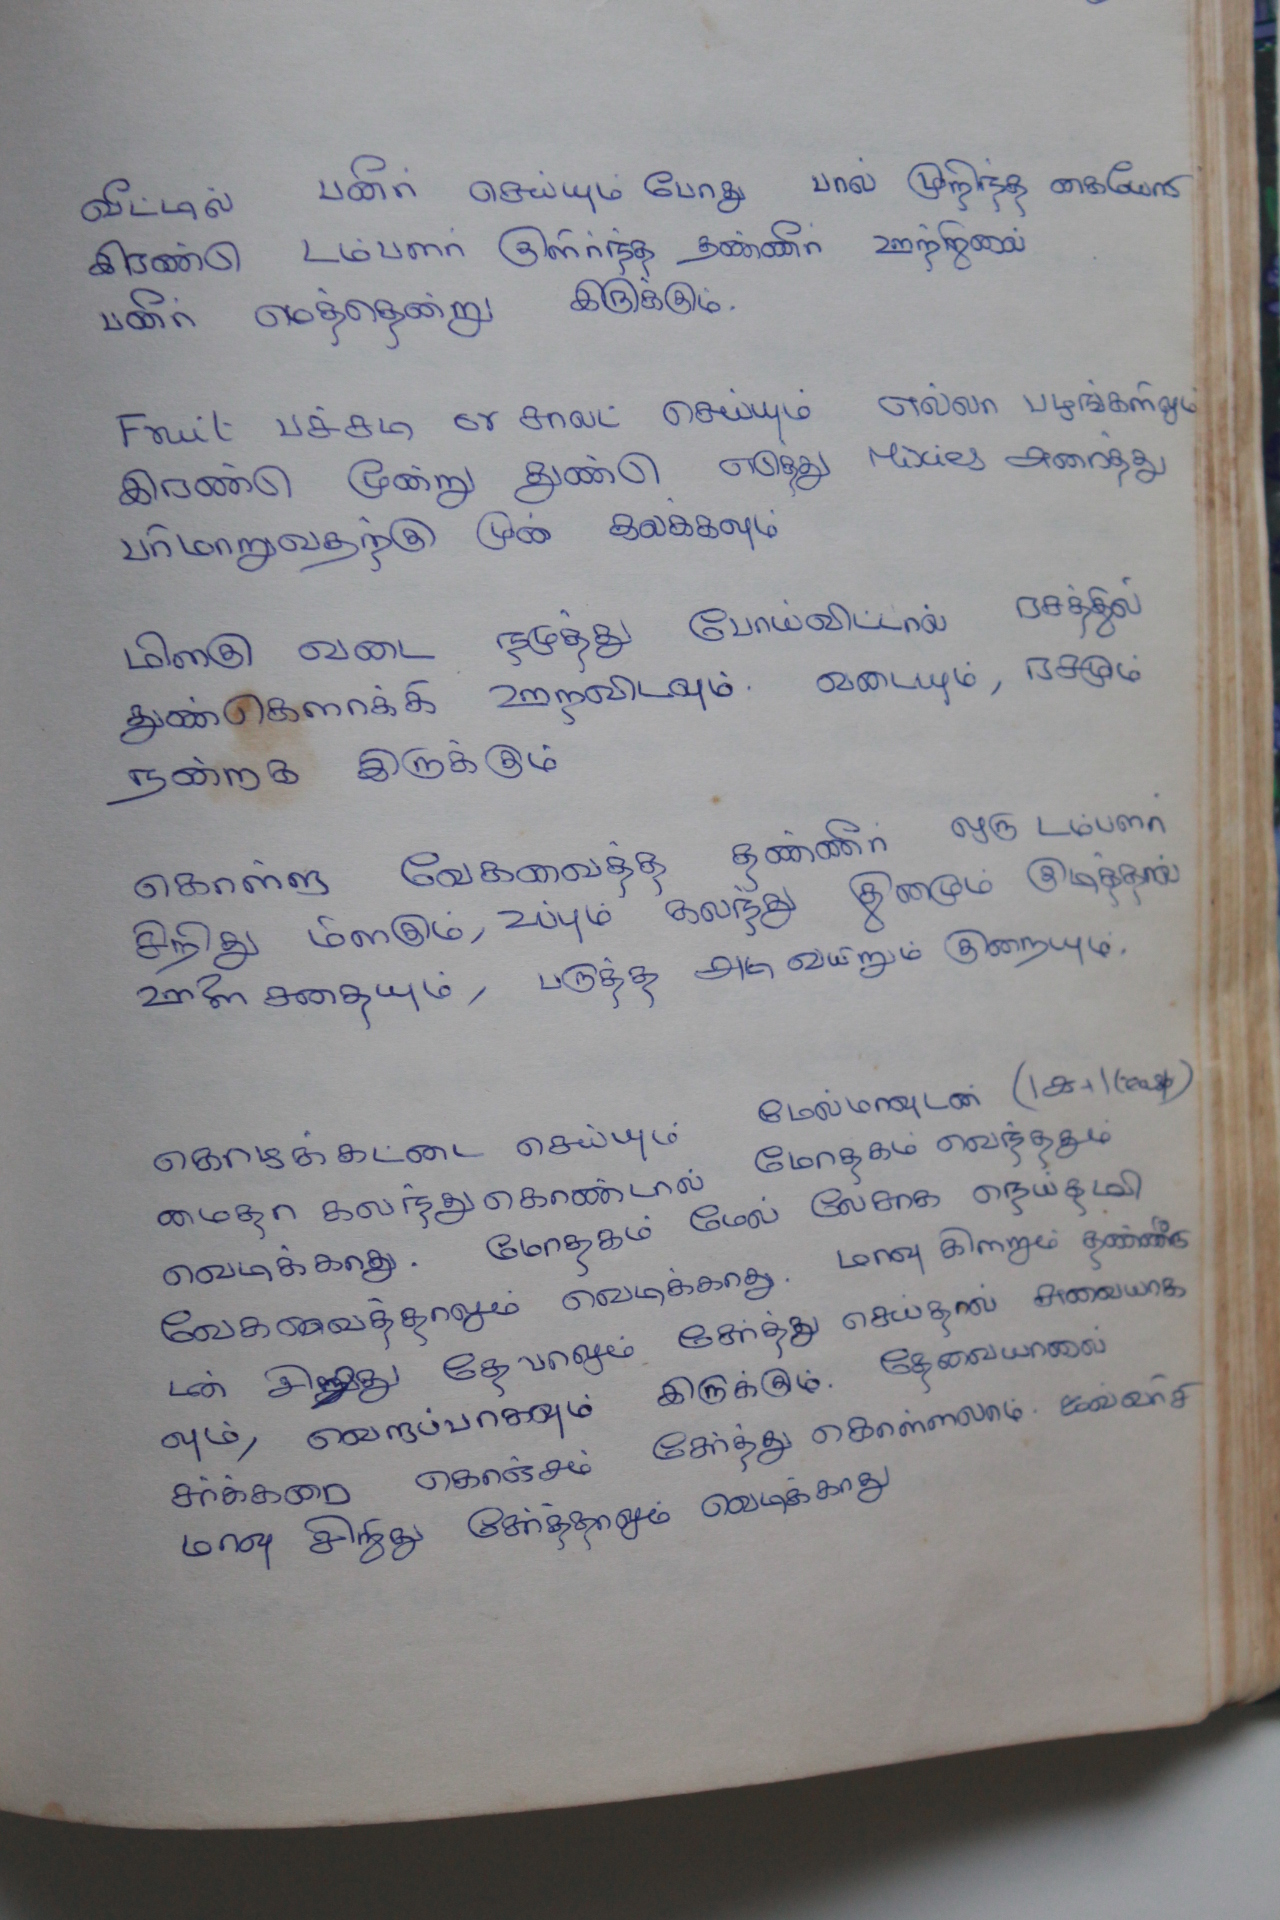 வீட்டில் பனீர் செய்யும் போது பால் முறிந்த கையோடு
இரண்டு டம்பளர் குளிர்ந்த தண்ணீர் ஊற்றினால்
பனீர் மெத்தென்று இருக்கும்.
Fruit பச்சடி or சாலட் செய்யும் எல்லா பழங்களிலும்
இரண்டு மூன்று துண்டு எடுத்து அரைத்து
பரிமாறுவதற்கு முன் கலக்கவும்
மிளகு வடை நமுத்து போய்விட்டால் ரசத்தில்
துண்டுகளாக்கி ஊறவிடவும். வடையும், ரசமும்
நன்றாக இருக்கும்
கொள்ளு வேகவைத்த தண்ணீர் ஒரு டம்பளர்
சிறிது மிளகும், உப்பும் கலந்து தினமும் குடித்தால்
ஊளை சதையும், பருத்த அடி வயிறும் குறையும்.
கொழக்கட்டை செய்யும் மேல்மாவுடன்
மைதா கலந்து கொண்டால் மோதகம் வெந்ததும்
வெடிக்காது. மோதகம் மேல் லேசாக நெய்தடவி
வேகவைத்தாலும் வெடிக்காது. மாவு கிளறும் தண்ணீரு
டன் சிறிது தே பாலும் சேர்த்து செய்தால் சுவையாக
வும், வெறப்பாகவும் இருக்கும். தேவையானால்
சர்க்கரை கொஞ்சம் சேர்த்து கொள்ளலாம். ஜவ்வரிசி
மாவு சிறிது சேர்த்தாலும் வெடிக்காது